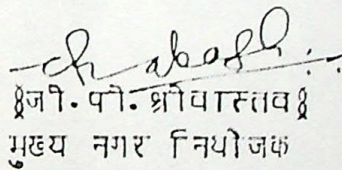 §जी. पी. श्रीवास्तव§
मुख्य नगर नियोजक